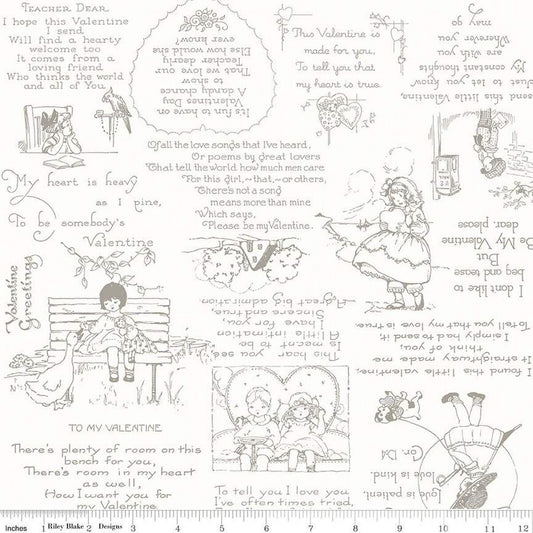 TEACHER DEAR,
I hope this Valentine
I send
Will find a hearty
welcome too
It comes from a
loving friend
Who thinks the world
and all of You
It's fun to have
Valentines Day
A dandy chance
to show
That we love our
Teacher dearly
Else how would she
ever know?
This Valentine is
made for you,
To tell you that
my heart is true.
send this little Valentine,
Just to let you know
My constant thoughts
are with you
Wherever you
may go
Of all the love songs that I've heard,
Or poems by great lovers
That tell the world how much men care
For this girl, ~ that, ~ or others,
There's not a song
means more than mine
Which says,
Please be my Valentine.
My heart is heavy
as I pine,
To be somebody's
Valentine
I don't like to
beg and tease
But
Be My Valentine
dear, please
Valentine
Greetings
This heart you see,
Is meant to be
A little intimation
I have for you,
Sincere and true,
A great big admiration.
I found this little valentine,
It straightway made me
think of you,
I simply had to send it,
To tell you that my love is true.
TO MY VALENTINE
There's plenty of room on this
bench for you,
There's room in my heart
as well,
How I want you for
my Valentine
To tell you I love you
I've often times tried,
Love is patient,
Love is kind.
Cor. 13:4
Inches 1 Riley Blake 2 Designs 3 4 5 6 7 8 9 10 11 12